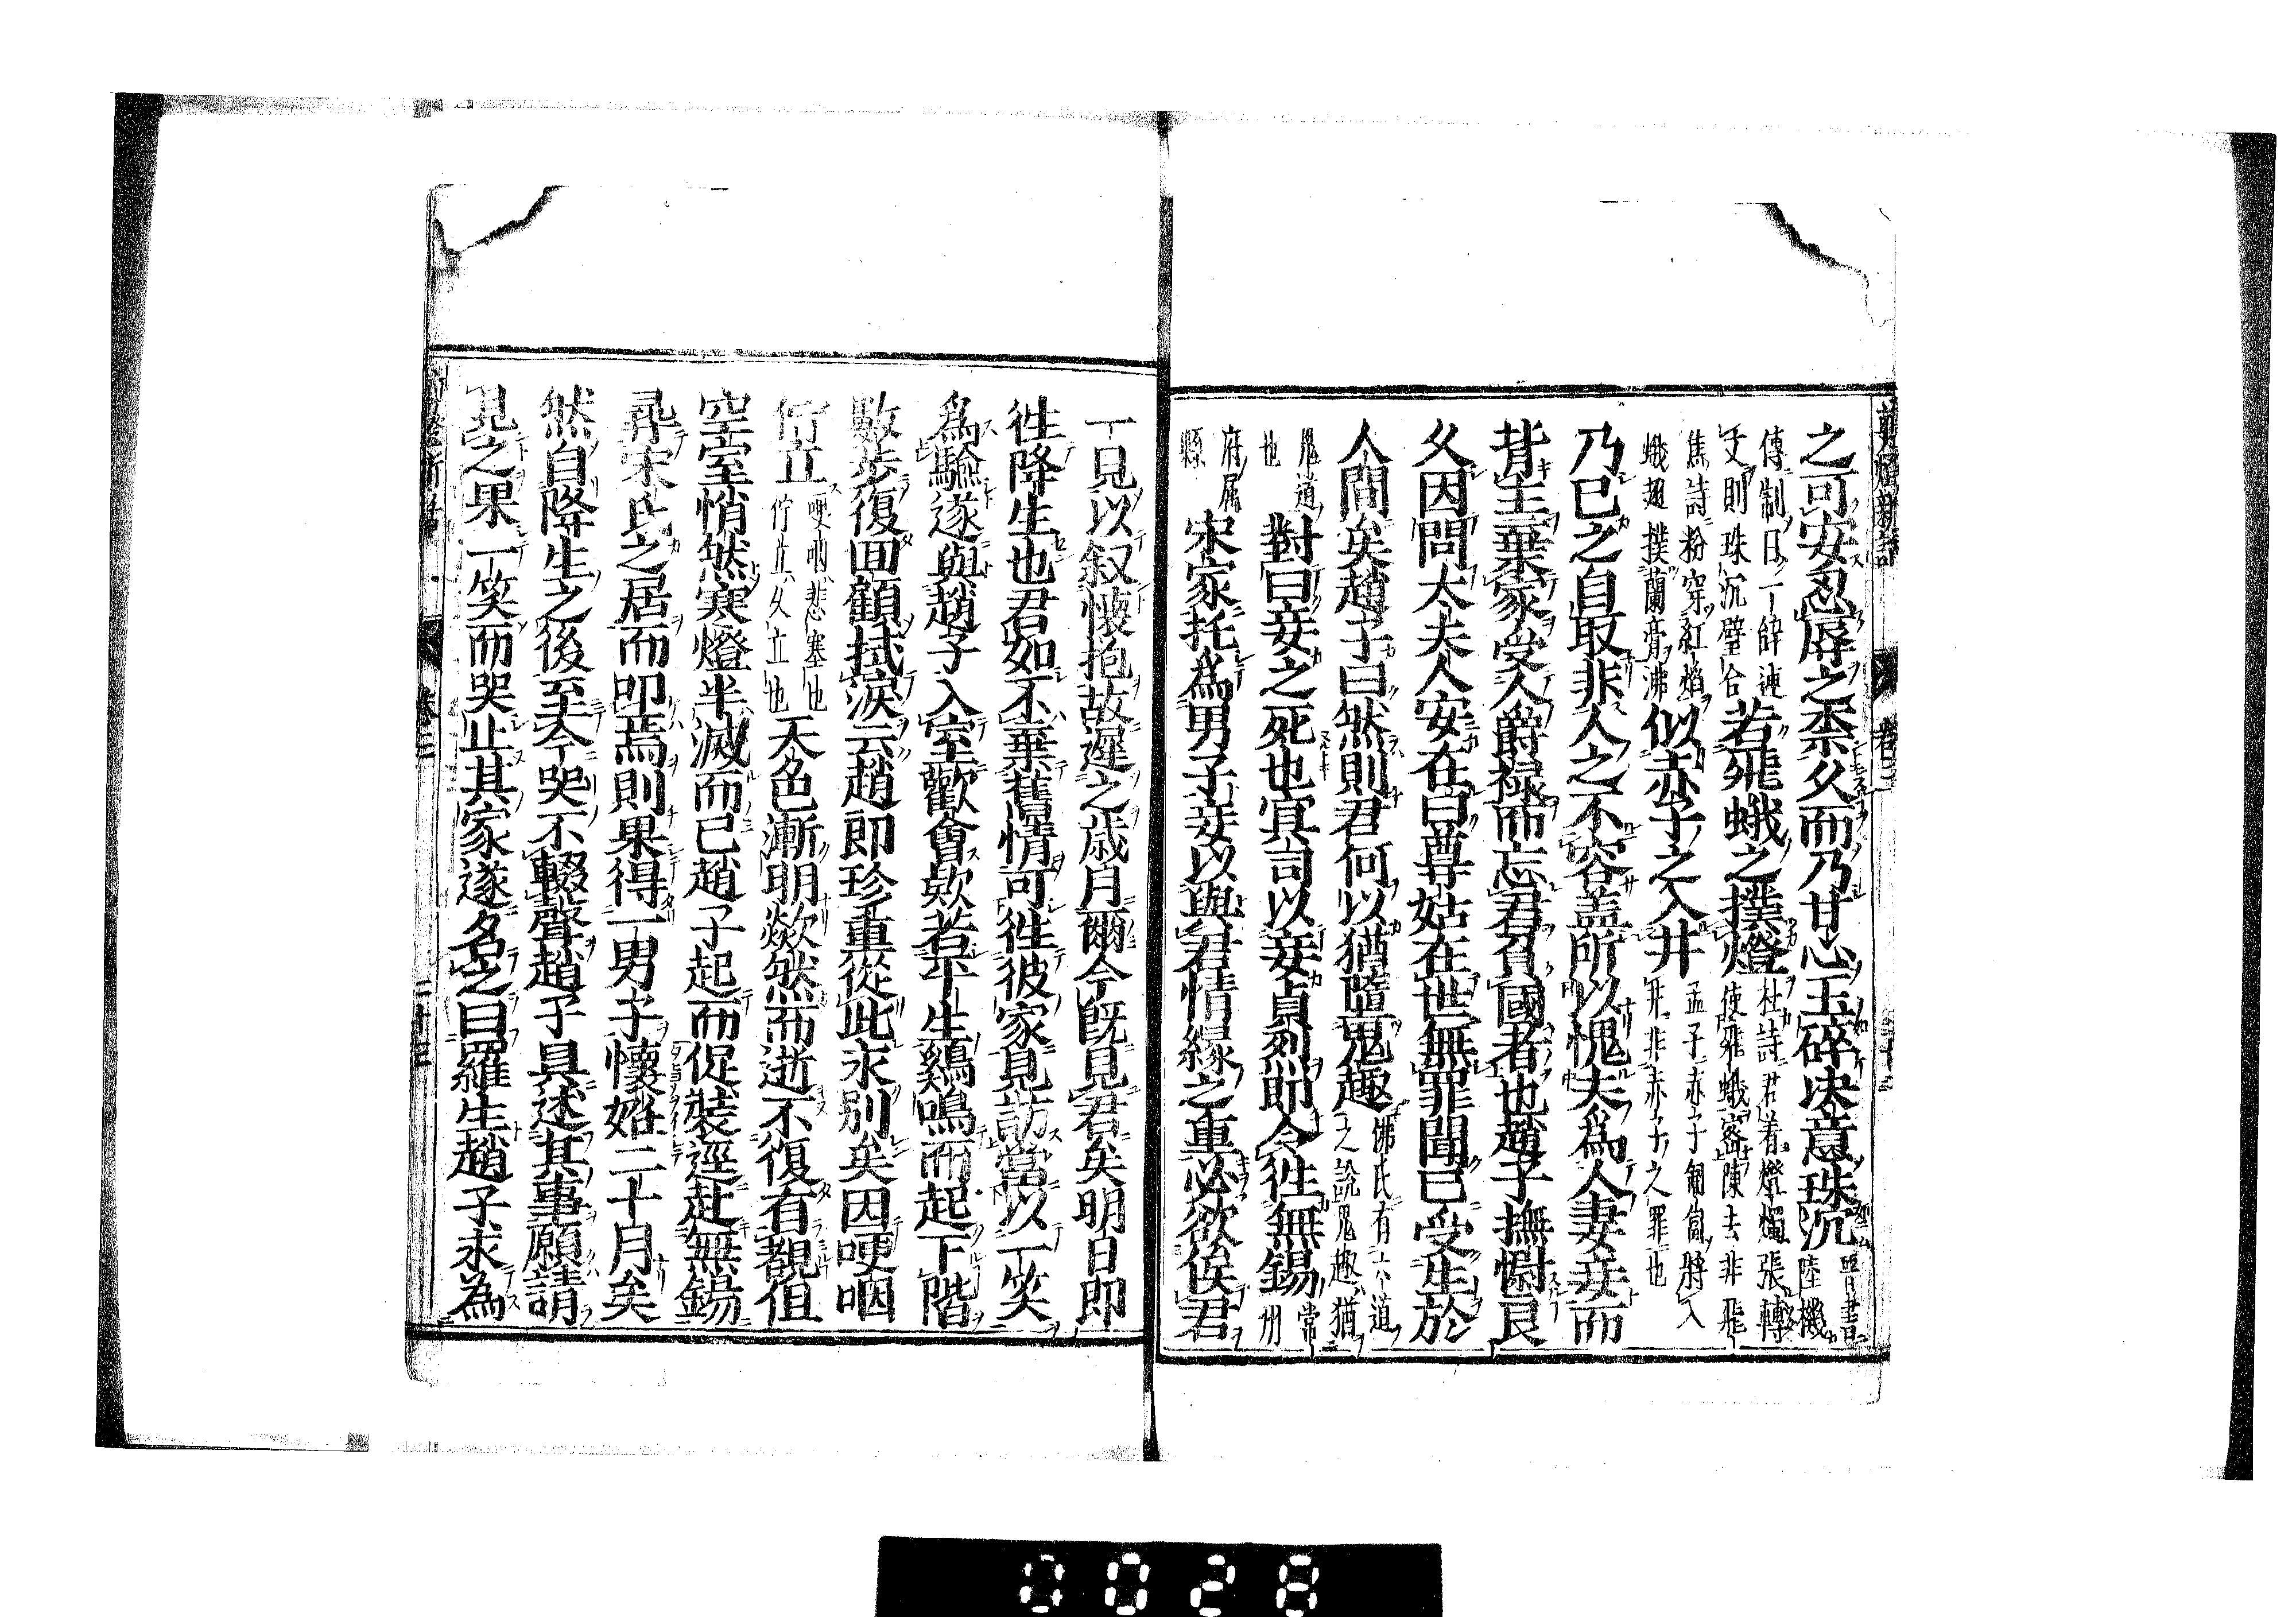 剪燈新話 卷三
之可安忍辱之柰久而乃甘心玉碎决意珠沉晉書陸機
傳制曰一辭連文則珠沉璧合若飛蛾之撲燈杜詩君看燈燭張轉使飛蛾密陳去非飛
焦詩粉穿紅焰蛾翅撲蘭膏沸似赤子之入井孟子赤子匍匐將入井非赤子之罪也
乃已之自取非人之不容盖所以愧夫爲人妻妾而
背主棄家受人爵禄而忘君負國者也趙子撫慰良
久因問太夫人安在曰尊姑在世無罪聞已受生於
人間矣趙子曰然則君何以猶墮鬼趣佛氏有六道之說鬼趣猶
鬼道也對曰妾之死也冥司以妾貞烈即令徃無錫常州
府属縣宋家托爲男子妾以與君情緣之重必欲俟君
一見以叙懷抱故遲之歲月爾今既見君矣明日即
徃降生也君如不棄舊情可徃彼家見訪當以一笑
爲驗遂與趙子入室歡會欵若平生鷄鳴而起下階
數步復回顧拭淚云趙郎珍重從此永別矣因哽咽
佇立哽咽悲塞也佇立久立也天色漸明欻然而逝不復有覩但
空室悄然寒燈半滅而已趙子起而促裝逕赴無錫
尋宋氏之居而叩焉則果得一男子懷姙二十月矣
然自降生之後至今哭不輟聲趙子具述其事願請
見之果一笑而哭止其家遂名之曰羅生趙子求為
卷三 二十三
0028